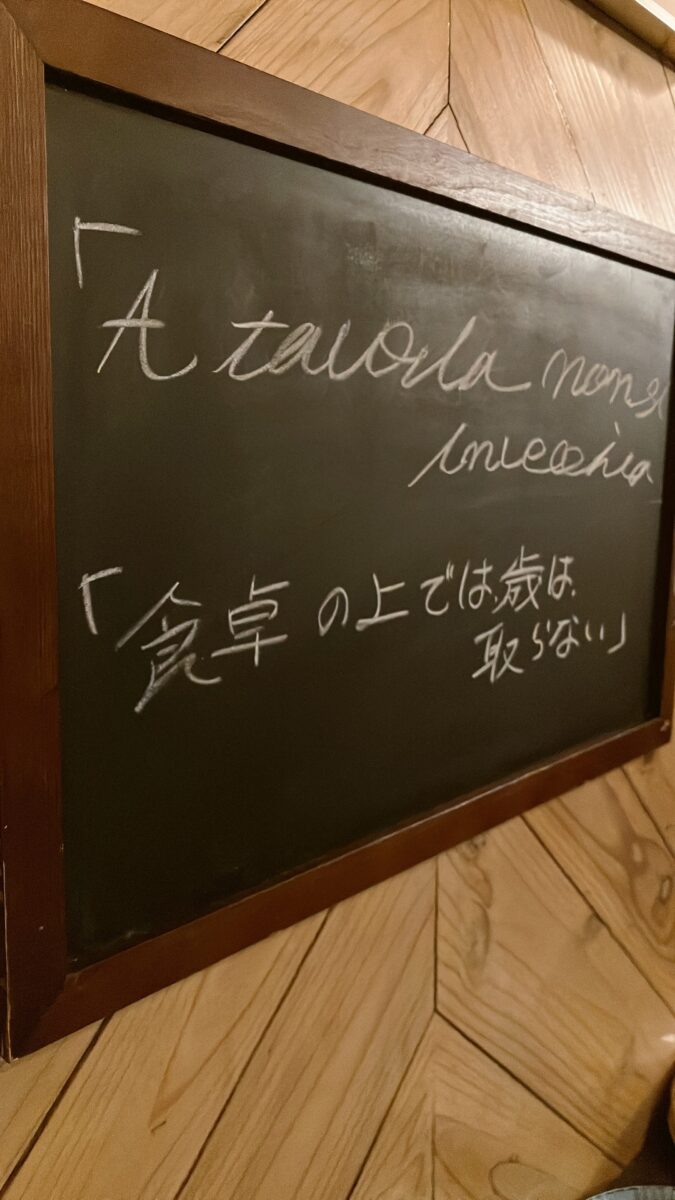 「A tavola non si
invecchia
「食卓の上では、歳は、
取らない」